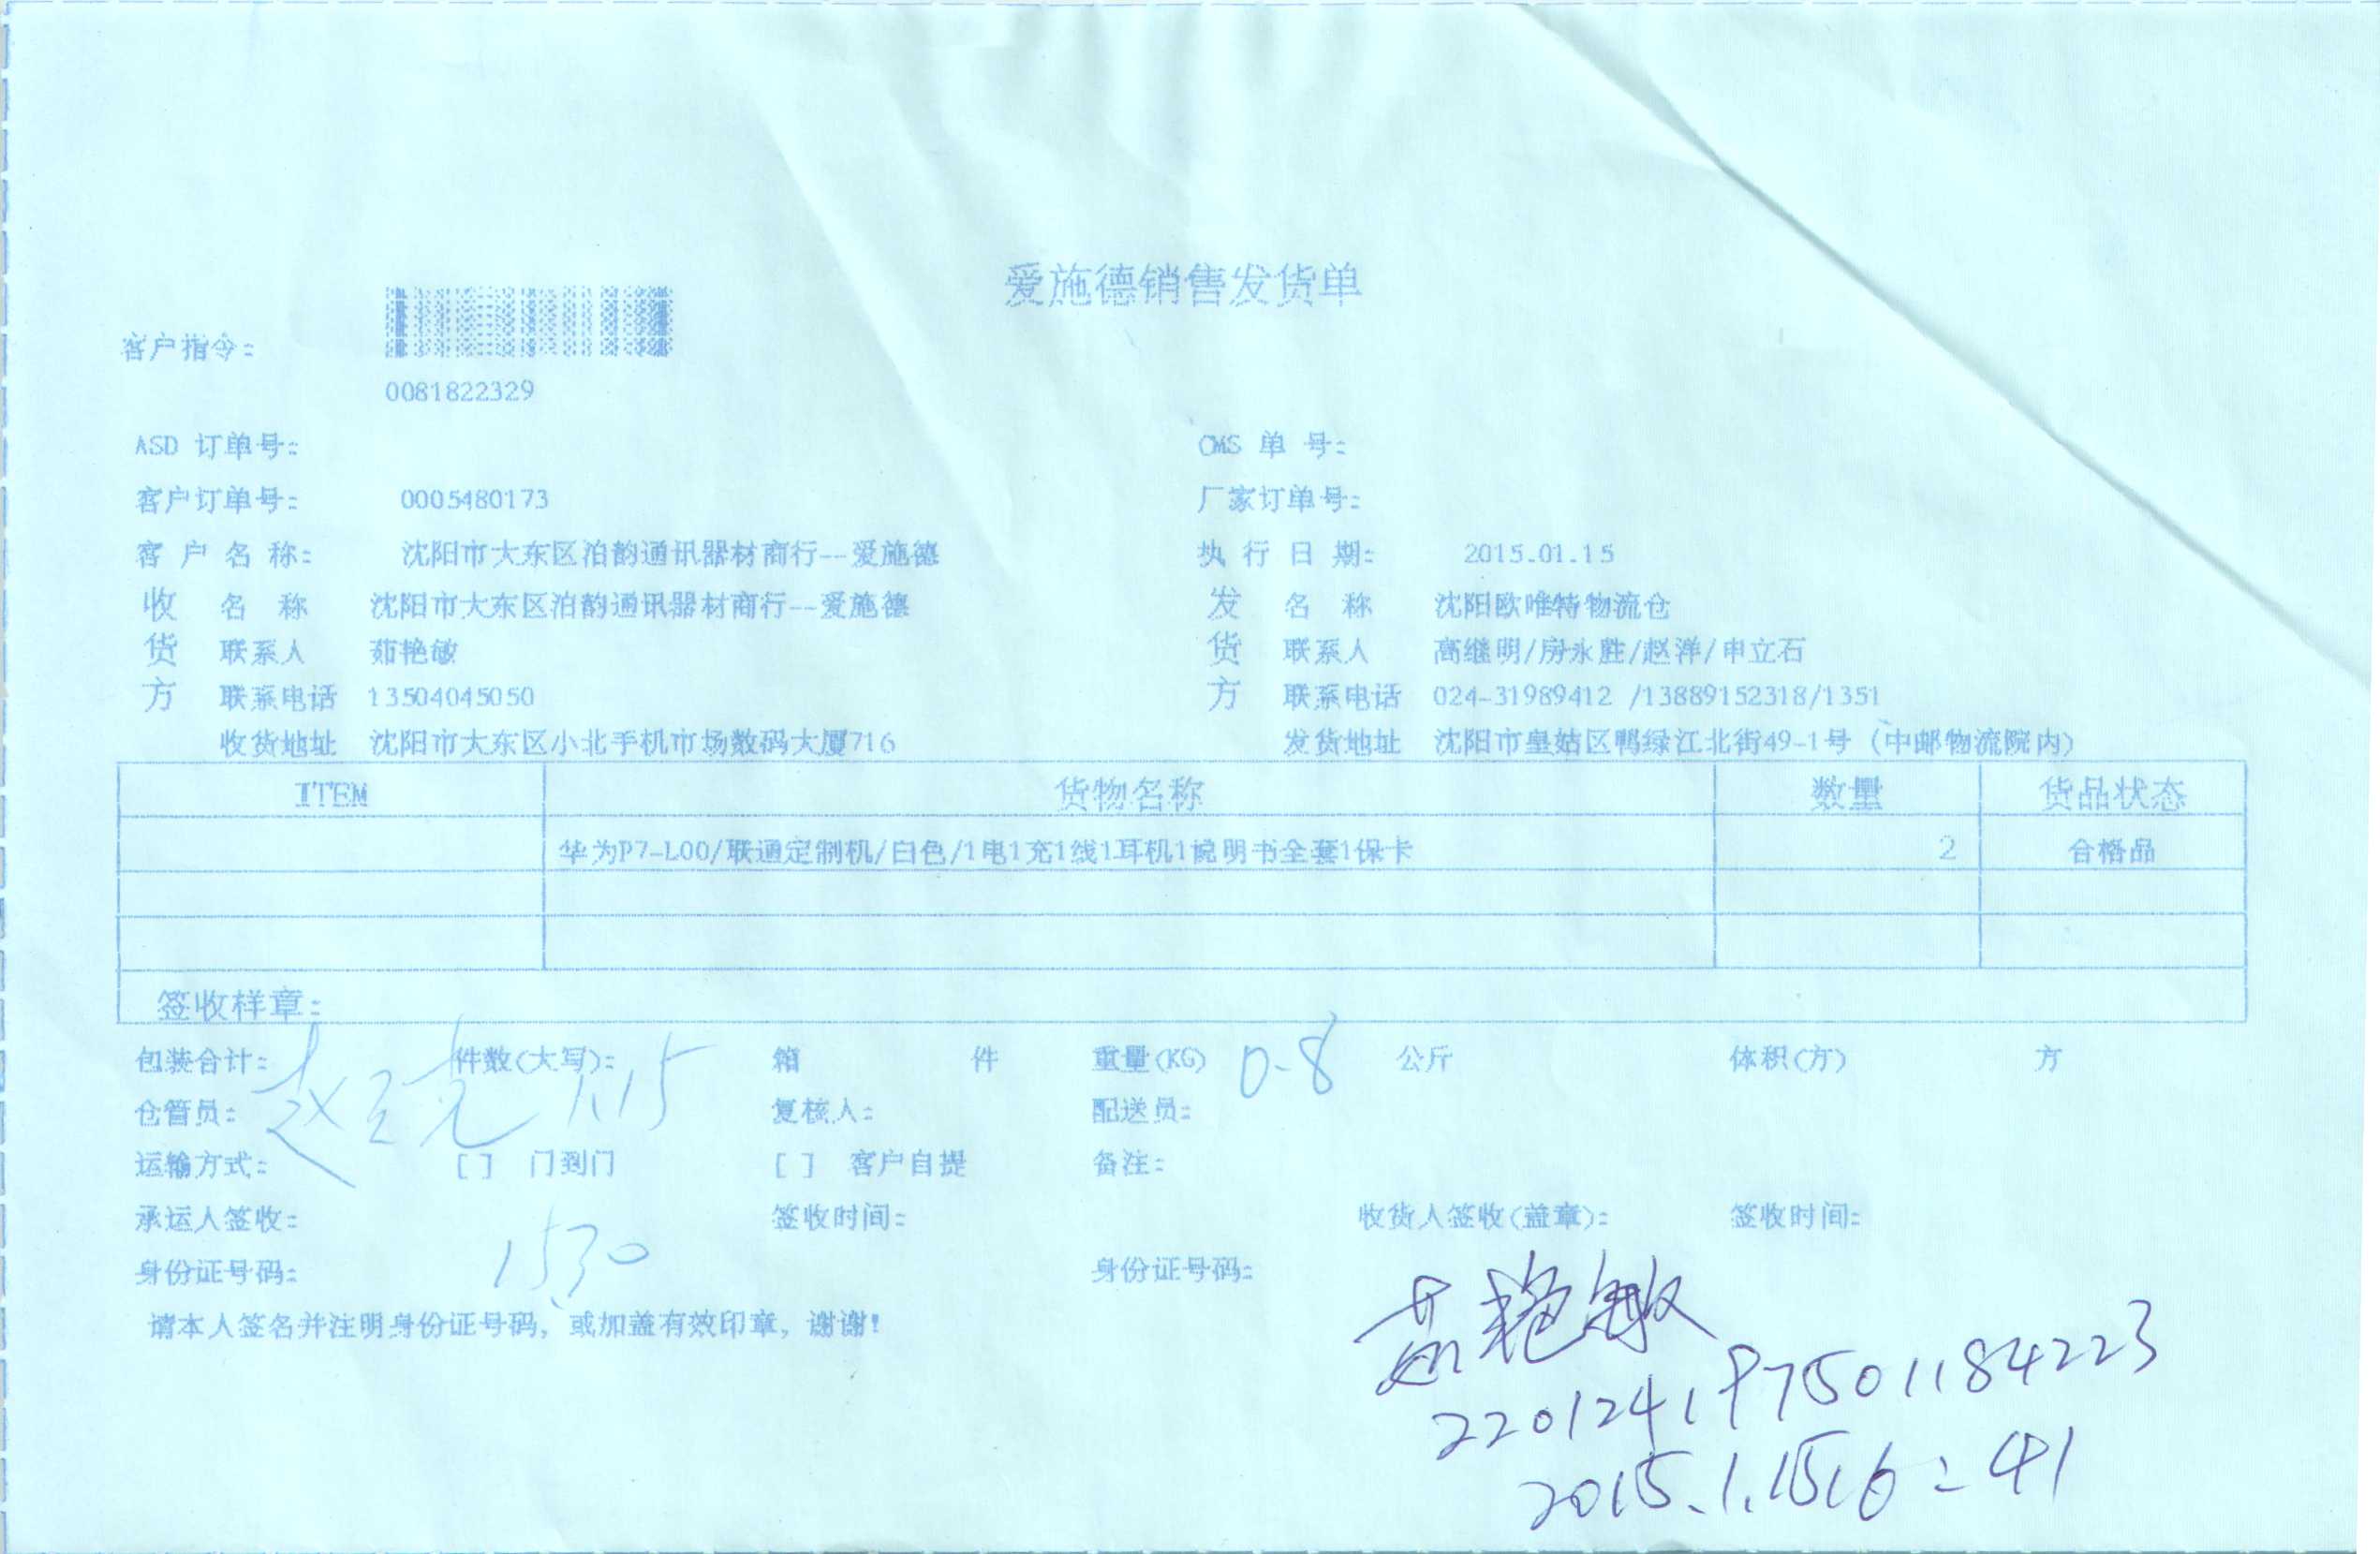 爱施德销售发货单
客户指令:
0081822329
ASD 订单号: CMS 单 号:
客户订单号: 0005480173 厂家订单号:
客 户 名 称: 沈阳市大东区泊韵通讯器材商行--爱施德 执 行 日 期: 2015.01.15
收 名 称 沈阳市大东区泊韵通讯器材商行--爱施德 发 名 称 沈阳欧唯特物流仓
货 联系人 茹艳敏 货 联系人 高继明/房永胜/赵洋/申立石
方 联系电话 13504045050 方 联系电话 024-31989412 /13889152318/1351
收货地址 沈阳市大东区小北手机市场数码大厦716 发货地址 沈阳市皇姑区鸭绿江北街49-1号 (中邮物流院内)
ITEM 货物名称 数量 货品状态
华为P7-L00/联通定制机/白色/1电1充1线1耳机1说明书全套1保卡 2 合格品
签收样章:
包装合计: 件数(大写): 箱 件 重量(KG) 0.8 公斤 体积(方) 方
仓管员: 1.15 复核人: 配送员:
运输方式: [ ] 门到门 [ ] 客户自提 备注:
承运人签收: 签收时间: 收货人签收(盖章): 签收时间:
身份证号码: 1530 身份证号码:
茹艳敏
请本人签名并注明身份证号码, 或加盖有效印章, 谢谢!
220124197501184223
2015.1.15 16:41